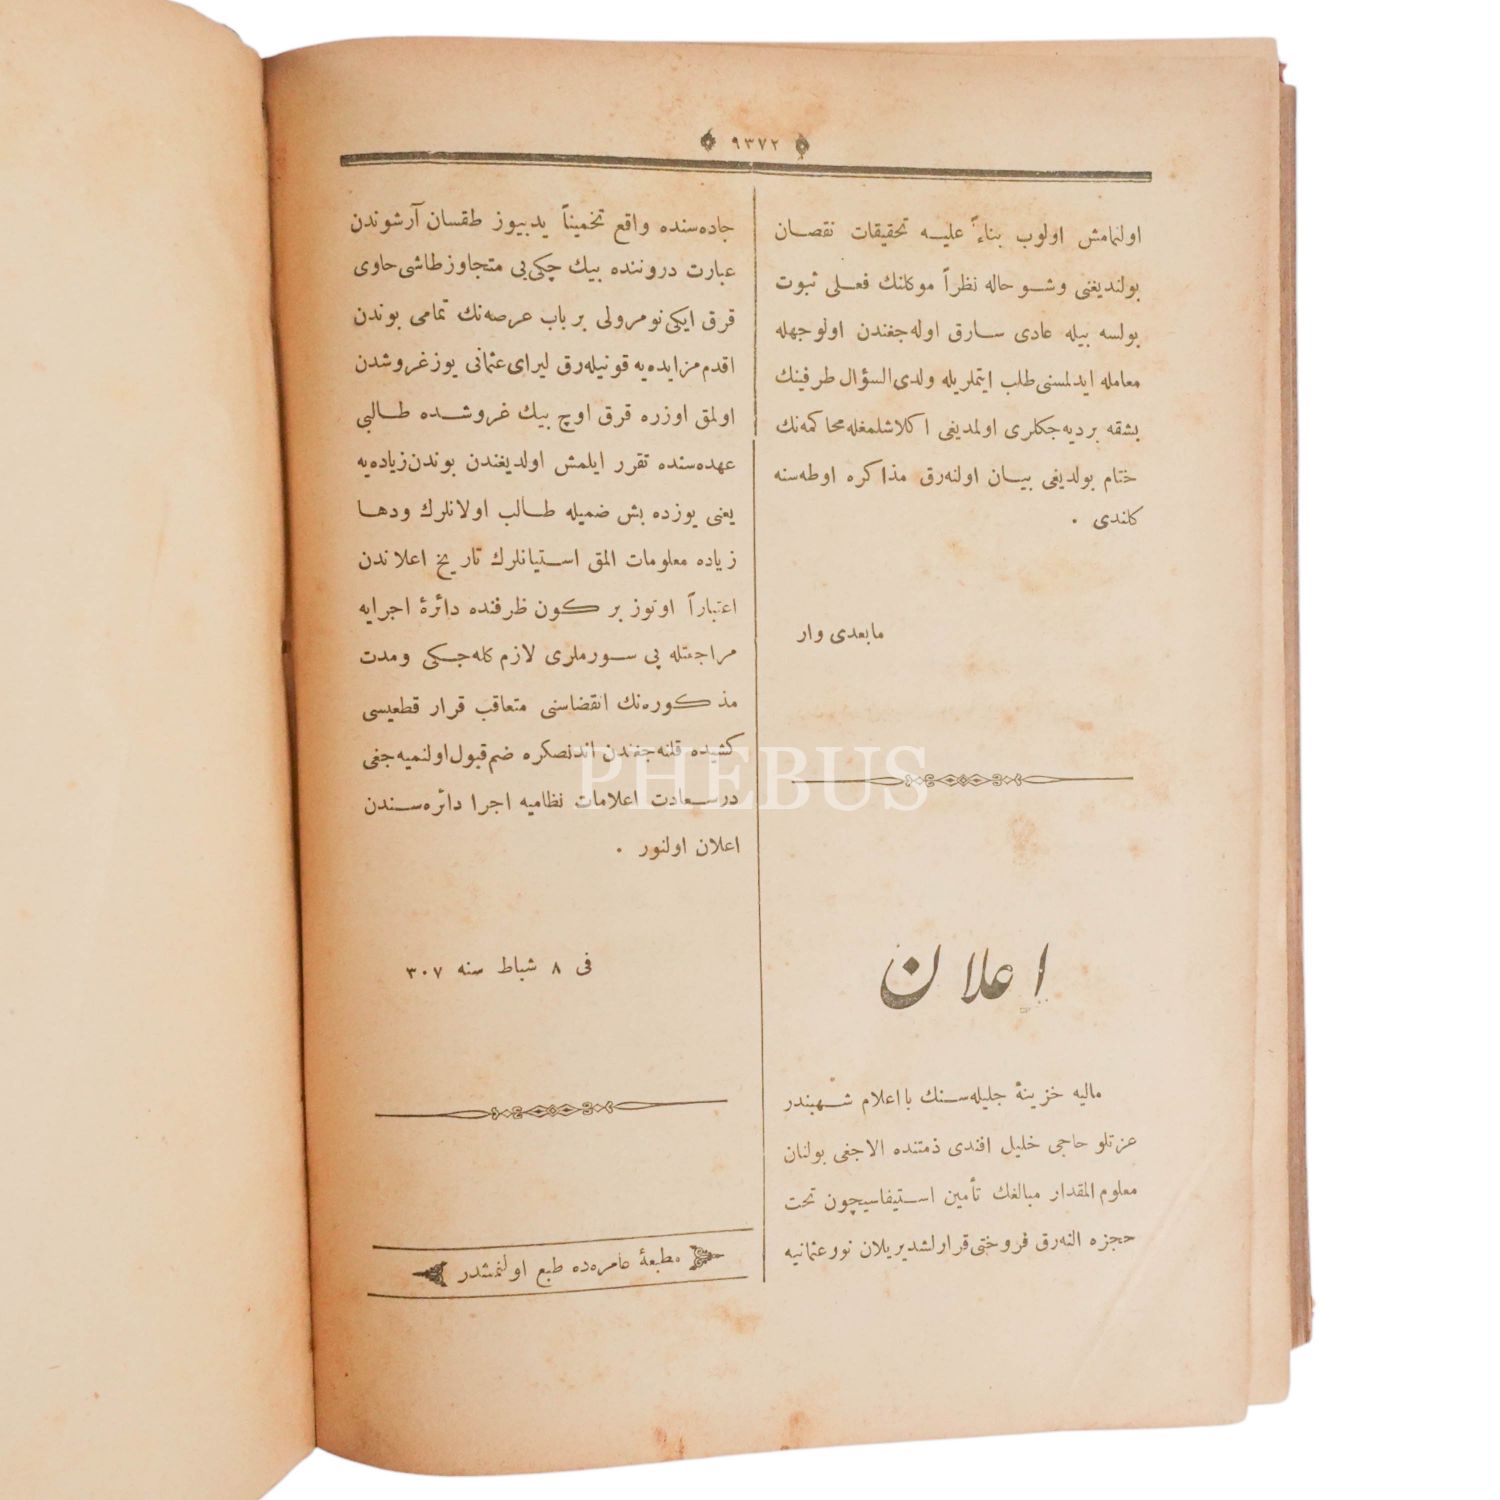 ٩٣٧٢
اولنمامش اولوب بناءً عليه تحقيقات نقصان
بولنديغنى وشو حاله نظراً موكلنك فعلى ثبوت
بولسه بيله عادى سارق اوله‌جغندن اولوجهله
معامله ايدلمسنى طلب ايتملريله ولدى السؤال طرفينك
بشقه برديه‌جكلرى اولمديغى اكلاشلمغله محاكمه‌نك
ختام بولديغى بيان اولنه‌رق مذاكره اوطه‌سنه
كلندى .
مابعدى وار
اعلان
ماليه خزينۀ جليله‌سنك بااعلام شهبندر
عزتلو حاجى خليل افندى ذمتنده الاجغى بولنان
معلوم المقدار مبالغك تأمين استيفاسيچون تحت
حجزه النه‌رق فروختى قرارلشديريلان نورعثمانيه
جاده‌سنده واقع تخميناً يديیوز طقسان آرشوندن
عبارت دروننده بيك چكى‌يى متجاوز طاشى حاوى
قرق ايكى نومرولى بر باب عرصه‌نك تمامى بوندن
اقدم مزايده‌يه قونيله‌رق ليراى عثمانى يوز غروشدن
اولمق اوزره قرق اوچ بيك غروشده طالبى
عهده‌سنده تقرر ايلمش اولديغندن بوندن زياده‌يه
يعنى يوزده بش ضميله طالب اولانلرك ودها
زياده معلومات المق استيانلرك تاريخ اعلاندن
اعتباراً اوتوز بر كون ظرفنده دائرۀ اجرايه
مراجعتله پى سورملرى لازم كله‌جكى ومدت
مذكوره‌نك انقضاسنى متعاقب قرار قطعيسى
كشيده قلنه‌جغندن اندنصكره ضم قبول اولنميه‌جغى
درسعادت اعلامات نظاميه اجرا دائره‌سندن
اعلان اولنور .
فى ٨ شباط سنه ٣٠٧
مطبعۀ عامره‌ده طبع اولنمشدر
PHEBUS